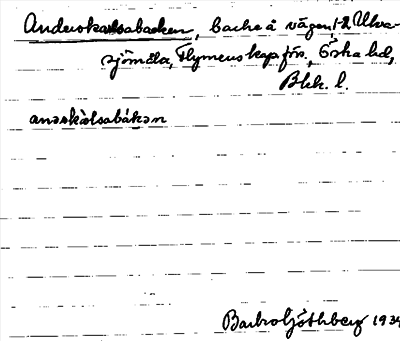 Anderskarlsabacken, backe å vägen t. Ulva-
sjömåla, Flymens kap.förs., Östra hd,
Blek. l.
anəskàlsabákən
Barbro Göthberg 1934